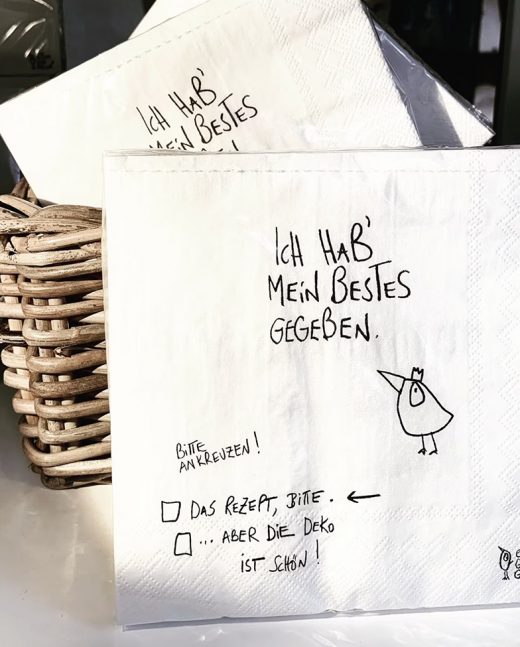 ICH HAB'
MEIN BESTES
ICH HAB'
MEIN BESTES
GEGEBEN.
BITTE
ANKREUZEN!
DAS REZEPT, BITTE. ←
... ABER DIE DEKO
IST SCHÖN!